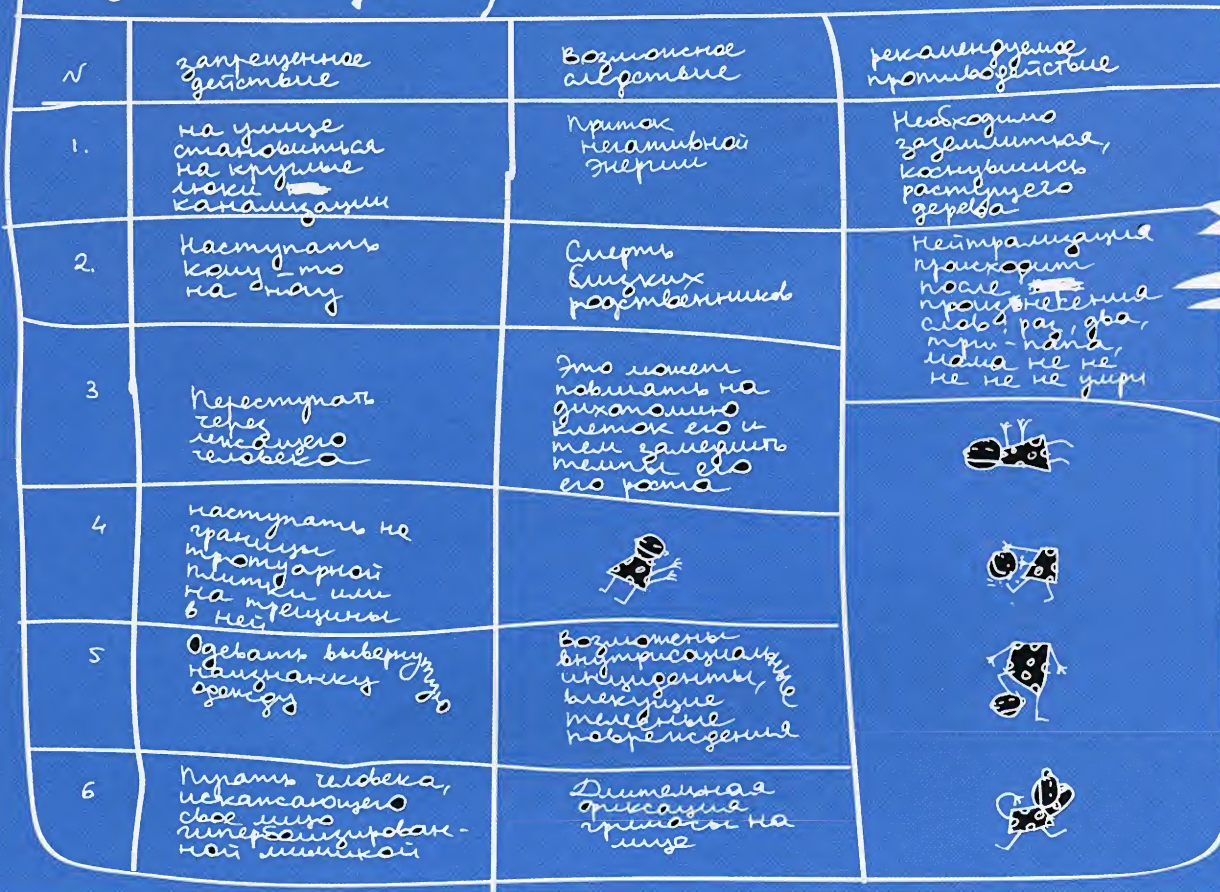 N
запрещенное
действие
Возможное
следствие
рекомендуемое
противодействие
1.
на улице
становиться
на круглые
люки
канализации
Приток
негативной
энергии
Необходимо
заземлиться,
коснувшись
растущего
дерева
2.
Наступать
кому-то
на ногу
Смерть
близких
родственников
Нейтрализация
происходит
после
произнесения
слов: раз, два,
три - папа,
мама не не
не не не умри
3
Переступать
через
лежащего
человека
Это может
повлиять на
дихотомию
клеток его и
тем замедлить
темпы его
его роста
4
наступать на
границы
тротуарной
плитки или
на трещины
в ней
5
Одевать вывернутую
наизнанку
одежду
Возможены
внутрисоциальные
инциденты,
влекущие
телесные
повреждения
6
Пугать человека,
искажающего
свое лицо
гиперболизирован-
ной мимикой
Длительная
фиксация
гримасы на
лице